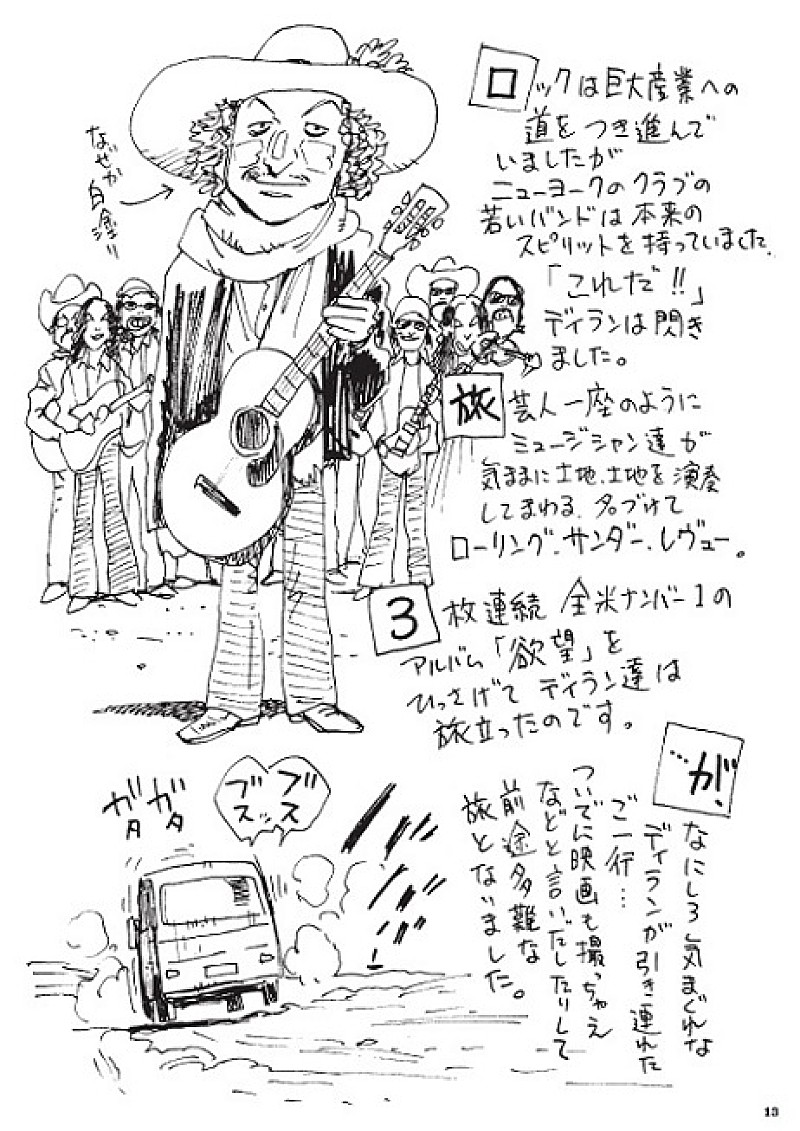 なぜか
白塗り
ロックは巨大産業への
道をつき進んで
いましたが
ニューヨークのクラブの
若いバンドは本来の
スピリットを持っていました。
「これだ!!」
ディランは閃き
ました。
旅芸人一座のように
ミュージシャン達が
気ままに土地、土地を演奏
してまわる、名づけて
ローリング・サンダー・レヴュー。
3枚連続全米ナンバー1の
アルバム「欲望」を
ひっさげてディラン達は
旅立ったのです。
…が、
なにしろ気まぐれな
ディランが引き連れた
ご一行…
ついでに映画も撮っちゃえ
などと言いだしたりして
前途多難な
旅となりました。
ブス
ブスッ
ガタ
ガタ
13